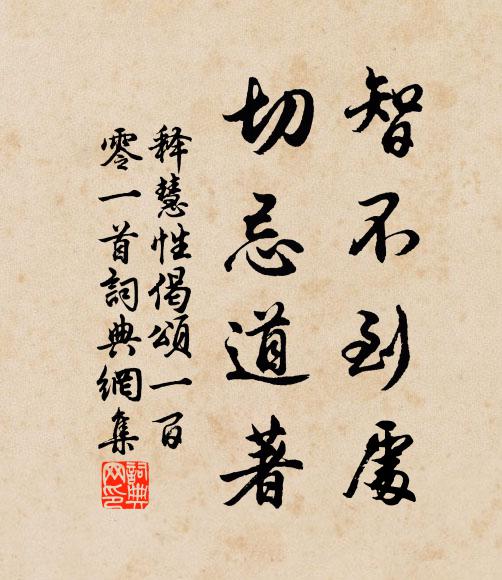 智不到處
切忌道著
释慧性偈頌一百
零一首詞典網集
詞典
网印